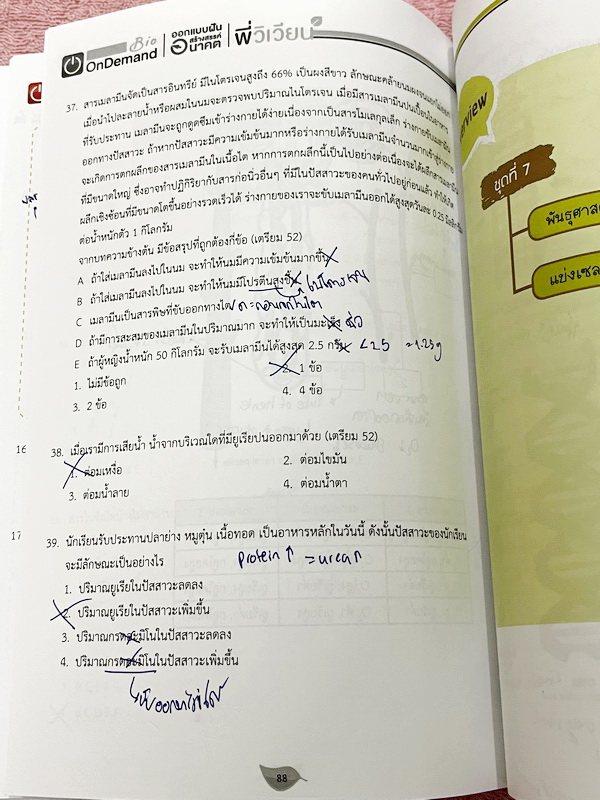 Bio
OnDemand
ออกแบบฝัน
สร้างสรรค์
อนาคต
พี่วิเวียน
37. สารเมลามีนจัดเป็นสารอินทรีย์ มีไนโตรเจนสูงถึง 66% เป็นผงสีขาว ลักษณะคล้ายนมผง
เมื่อนำไปละลายน้ำหรือผสมในนมจะตรวจพบปริมาณไนโตรเจน เมื่อมีสารเมลามีนปนเปื้อนในอาหาร
ที่รับประทาน เมลามีนจะถูกดูดซึมเข้าร่างกายได้ง่ายเนื่องจากเป็นสารโมเลกุลเล็ก ร่างกายขับเมลามีน
ออกทางปัสสาวะ ถ้าหากปัสสาวะมีความเข้มข้นมากหรือร่างกายได้รับเมลามีนจำนวนมากเข้าสู่ร่างกาย
จะเกิดการตกผลึกของสารเมลามีนในเนื้อไต หากการตกผลึกนี้เป็นไปอย่างต่อเนื่องจะได้ผลึกสารเมลามีน
ที่มีขนาดใหญ่ ซึ่งอาจทำปฏิกิริยากับสารก่อนิ่วอื่นๆ ที่มีในปัสสาวะของคนทั่วไปอยู่ก่อนแล้ว ทำให้เกิด
ผลึกเชิงซ้อนที่มีขนาดโตขึ้นอย่างรวดเร็วได้ ร่างกายของเราจะขับเมลามีนออกได้สูงสุดวันละ 0.25
ต่อน้ำหนักตัว 1 กิโลกรัม
จากบทความข้างต้น มีข้อสรุปที่ถูกต้องกี่ข้อ (เตรียม 52)
A ถ้าใส่เมลามีนลงไปในนม จะทำให้นมมีความเข้มข้นมากขึ้น
B ถ้าใส่เมลามีนลงไปในนม จะทำให้นมมีโปรตีนสูงขึ้น ไนโตรเจน
C เมลามีนเป็นสารพิษที่ขับออกทางไต
D ถ้ามีการสะสมของเมลามีนในปริมาณมาก จะทำให้เป็นมะเร็ง นิ่ว
E ถ้าผู้หญิงน้ำหนัก 50 กิโลกรัม จะรับเมลามีนได้สูงสุด 2.5 กรัม
1. ไม่มีข้อถูก
2. 1 ข้อ
3. 2 ข้อ
4. 4 ข้อ
16
38. เมื่อเรามีการเสียน้ำ น้ำจากบริเวณใดที่มียูเรียปนออกมาด้วย (เตรียม 52)
1. ต่อมเหงื่อ
2. ต่อมไขมัน
3. ต่อมน้ำลาย
4. ต่อมน้ำตา
17
39. นักเรียนรับประทานปลาย่าง หมูตุ๋น เนื้อทอด เป็นอาหารหลักในวันนี้ ดังนั้นปัสสาวะของนักเรียน
จะมีลักษณะเป็นอย่างไร
protein ↑ = urea ↑
1. ปริมาณยูเรียในปัสสาวะลดลง
2. ปริมาณยูเรียในปัสสาวะเพิ่มขึ้น
3. ปริมาณกรดอะมิโนในปัสสาวะลดลง
4. ปริมาณกรดอะมิโนในปัสสาวะเพิ่มขึ้น
88
ชุดที่ 7